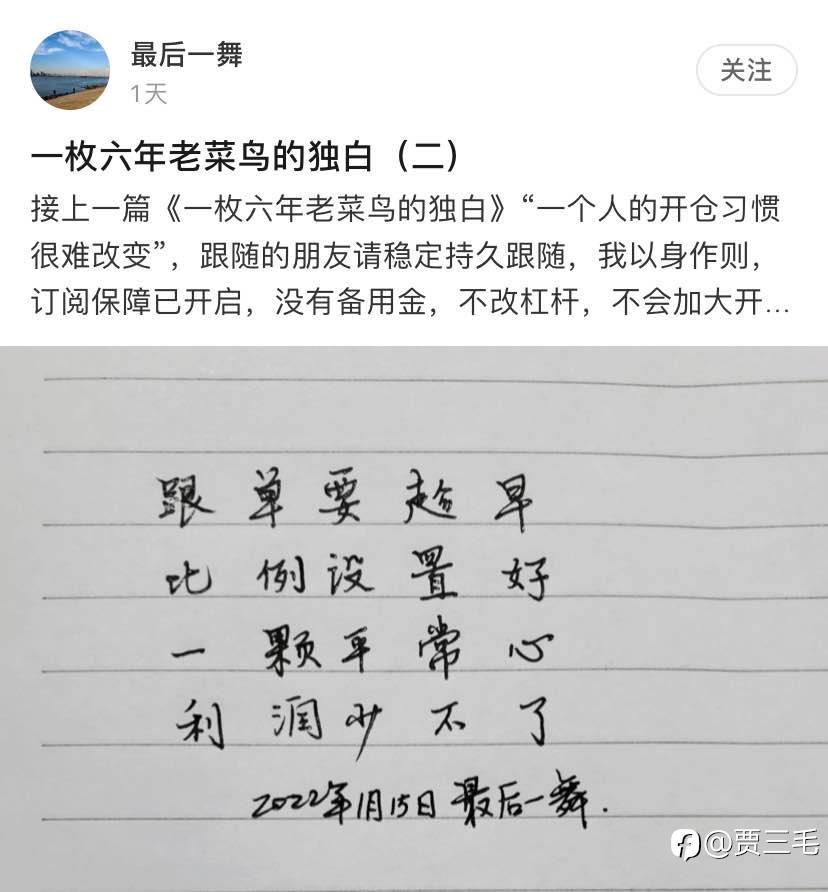 最后一舞
1天
关注
一枚六年老菜鸟的独白（二）
接上一篇《一枚六年老菜鸟的独白》“一个人的开仓习惯
很难改变”，跟随的朋友请稳定持久跟随，我以身作则，
订阅保障已开启，没有备用金，不改杠杆，不会加大开...
跟单要趁早
比例设置好
一颗平常心
利润少不了
2022年1月15日 最后一舞.
@贾三毛